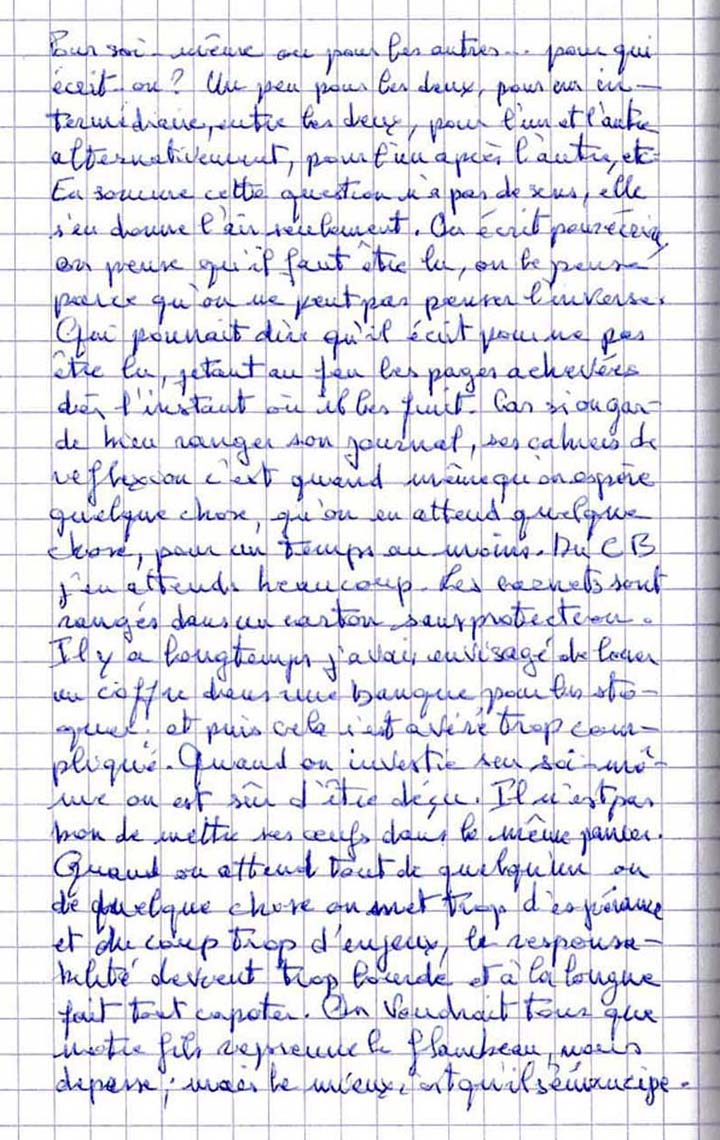 Pour soi-même ou pour les autres... pour qui
écrit-on? Un peu pour les deux, pour un in-
termédiaire, entre les deux, pour l'un et l'autre
alternativement, pour l'un après l'autre, etc
En somme cette question n'a pas de sens, elle
s'en donne l'air seulement. On écrit pour écrire,
on pense qu'il faut être lu, on le pense
parce qu'on ne peut pas penser l'inverse.
Qui pourrait dire qu'il écrit pour ne pas
être lu, jetant au feu les pages achevées
dès l'instant où il les finit. Car si on gar-
de bien ranger son journal, ses cahiers de
reflexion c'est quand même qu'on espère
quelque chose, qu'on en attend quelque
chose, pour un temps au moins. Du CB
j'en attends beaucoup. Les carnets sont
rangés dans un carton, sans protection.
Il y a longtemps j'avais envisagé de louer
un coffre dans une banque pour les sto-
quer; et puis cela s'est avéré trop com-
pliqué. Quand on investie sur soi-mê-
me on est sûr d'être déçu. Il n'est pas
bon de mettre ses œufs dans le même panier.
Quand on attend tout de quelqu'un ou
de quelque chose on met trop d'espérance
et du coup trop d'enjeux, la responsa-
bilité devient trop lourde et à la longue
fait tout capoter. On voudrait tous que
notre fils reprenne le flambeau, nous
dépasse; mais le mieux c'est qu'il s'émancipe.